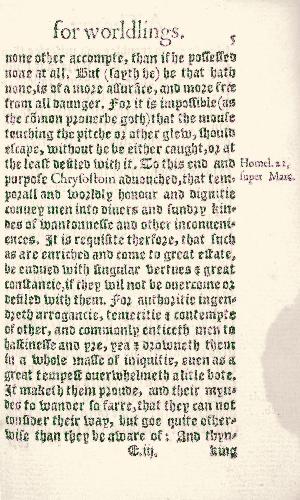 for worldlings. 5
none other accompte, than if he possessed
none at all. But (sayth he) he that hath
none, is of a more assurāce, and more free
from all daunger. For it is impossible (as
the cōmon prouerbe goth) that the mouse
touching the pitche or other glew, should
escape, without he be either caught, or at
the least defiled with it. To this end and
purpose Chrysostom aduouched, that tem-
porall and worldly honour and dignitie
conuey men into diuers and sundry kin-
des of wantonnesse and other inconueni-
ences. It is requisite therfore, that such
as are enriched and come to great estate,
be endued with singular vertues & great
constancie, if they will not be ouercome or
defiled with them. For authoritie ingen-
dreth arrogancie, temeritie & contempte
of other, and commonly enticeth men to
hastinesse and yre, yea & drowneth them
in a whole masse of iniquitie, euen as a
great tempest ouerwhelmeth a litle bote.
It maketh them proude, and their myn-
des to wander so farre, that they can not
consider their way, but goe quite other-
wise than they be aware of: And thyn-
E.iij. king
Homel. 22,
super Marc.